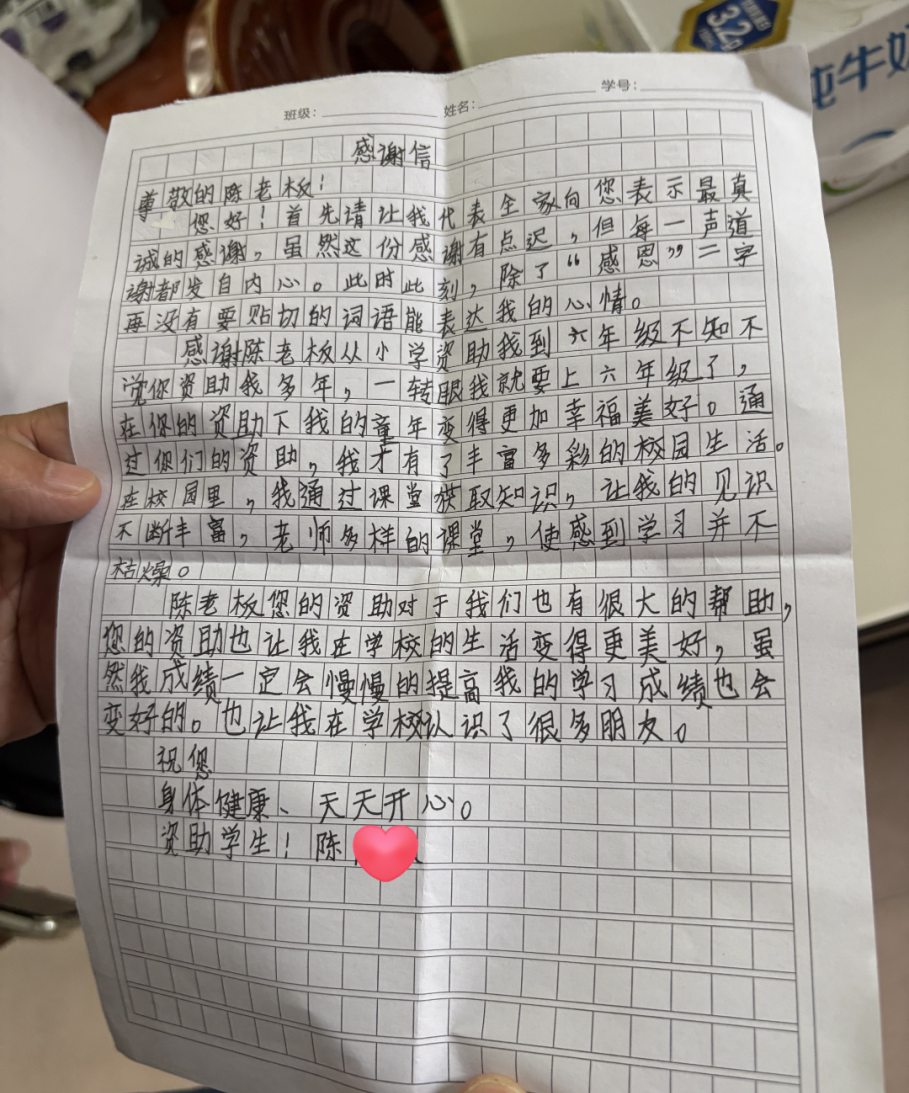 3.2g
纯牛奶
班级： 姓名： 学号：
感谢信
尊敬的陈老板！
您好！首先请让我代表全家向您表示最真
诚的感谢，虽然这份感谢有点迟，但每一声道
谢都发自内心。此时此刻，除了“感恩”二字
再没有要贴切的词语能表达我的心情。
感谢陈老板从小学资助我到六年级不知不
觉你资助我多年，一转眼我就要上六年级了，
在你的资助下我的童年变得更加幸福美好。通
过你们的资助，我才有了丰富多彩的校园生活。
在校园里，我通过课堂获取知识，让我的见识
不断丰富，老师多样的课堂，使感到学习并不
枯燥。
陈老板您的资助对于我们也有很大的帮助，
您的资助也让我在学校的生活变得更美好，虽
然我成绩一定会慢慢的提高我的学习成绩也会
变好的。也让我在学校认识了很多朋友。
祝您
身体健康、天天开心。
资助学生！陈